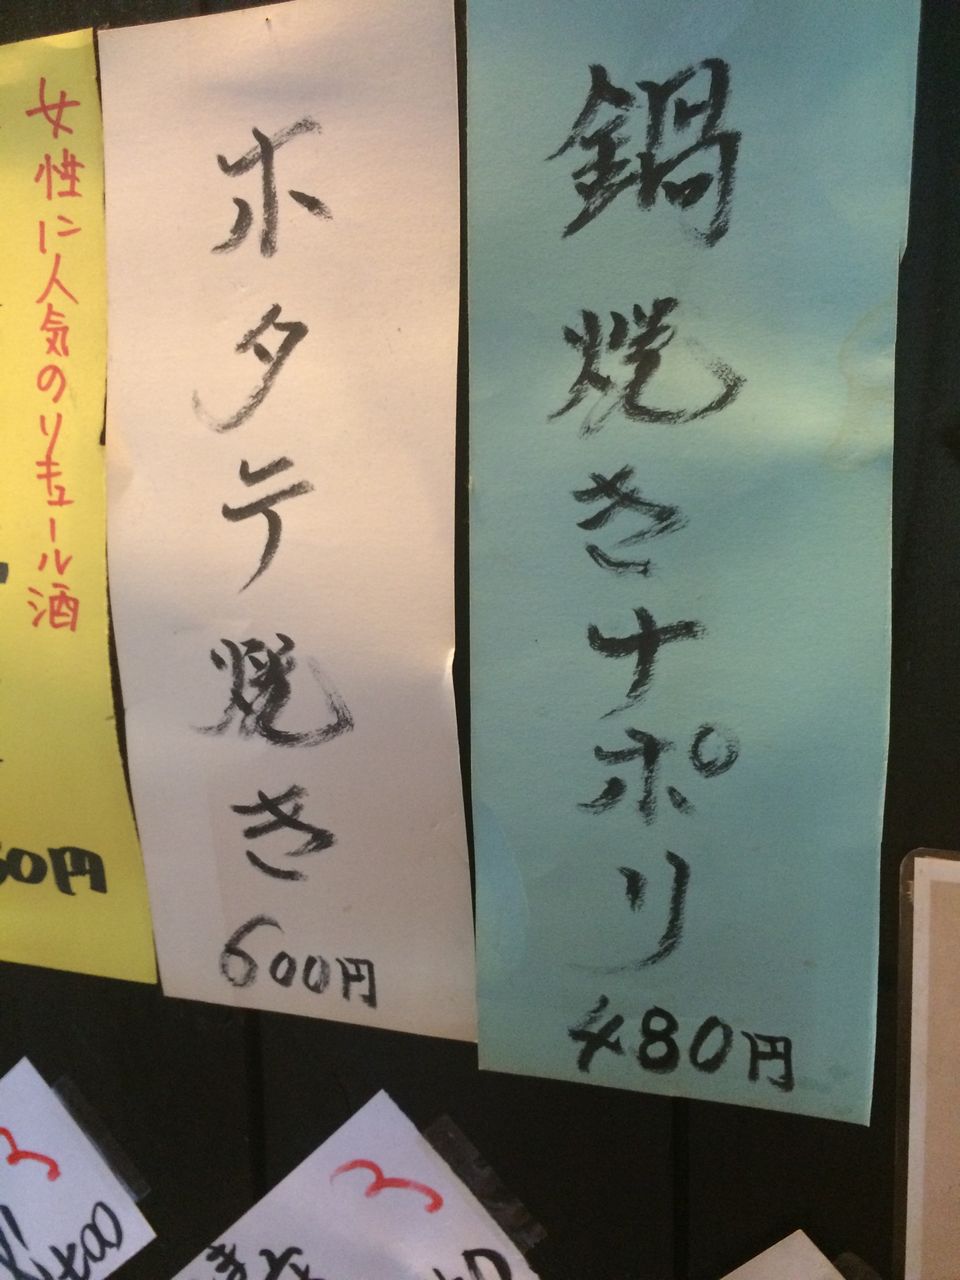 鍋焼きナポリ
480円
ホタテ焼き
600円
女性に人気のリキュール酒
50円